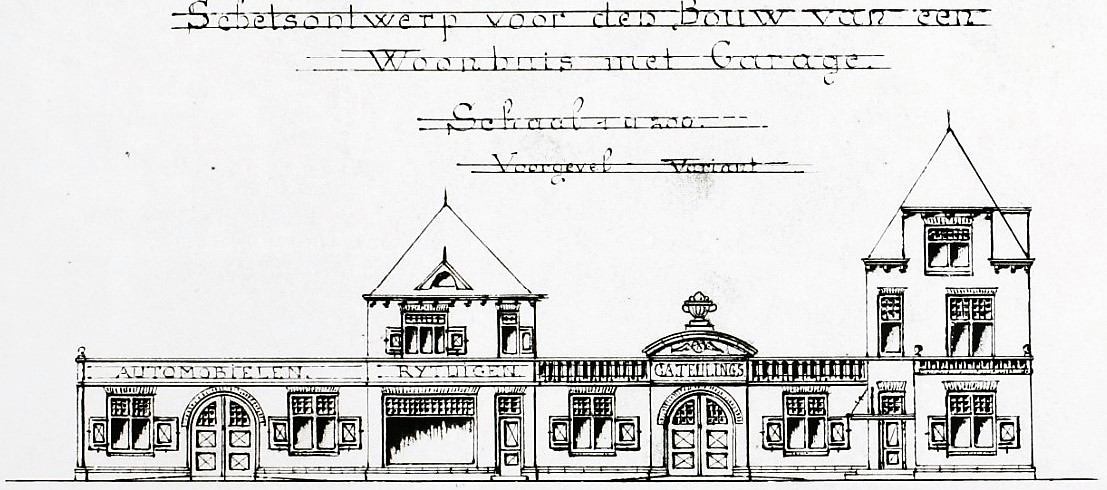 Schetsontwerp voor den Bouw van een
Woonhuis met Garage.
Schaal 1 a 200.
Voorgevel Variant
AUTOMOBIELEN. RYTUIGEN. GATENLINGS